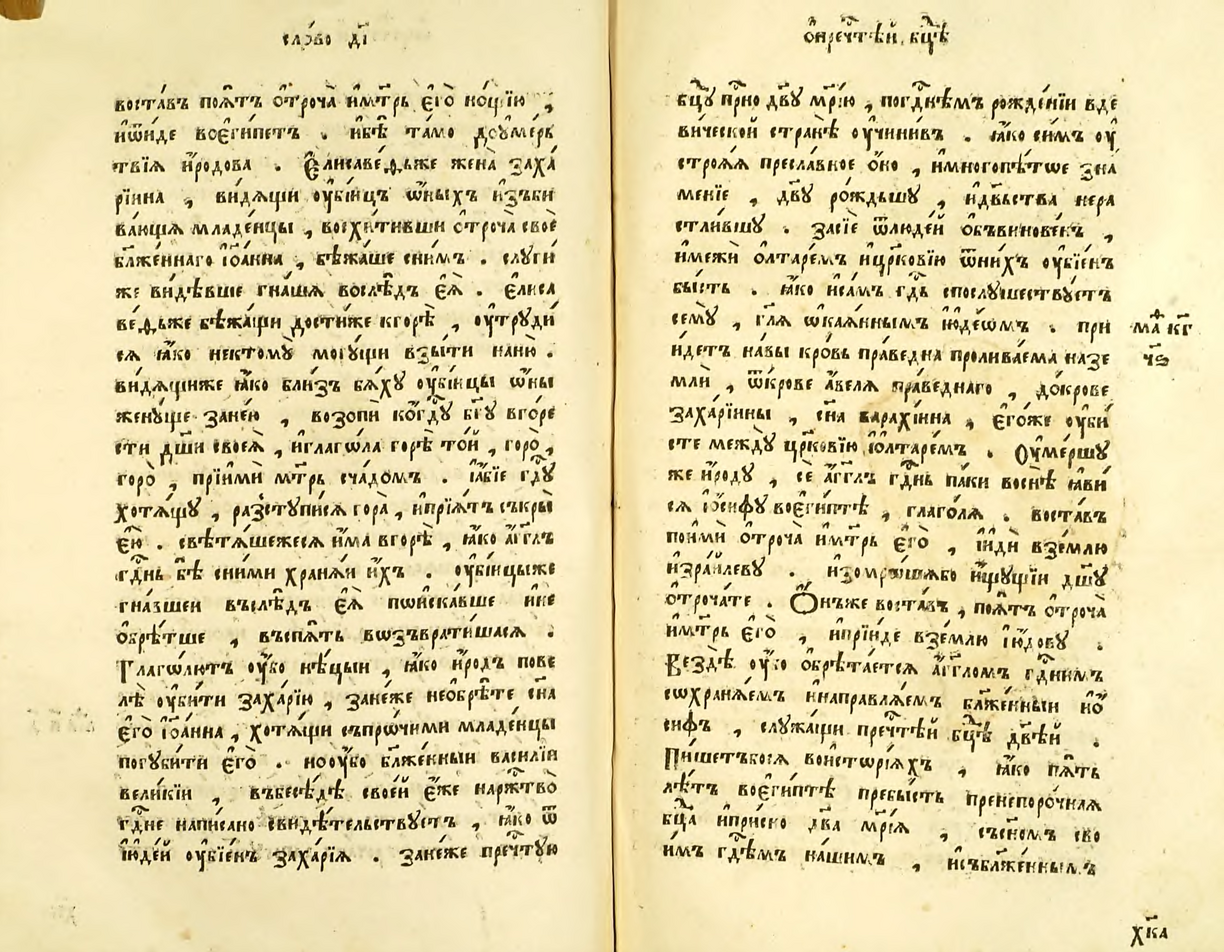 сло́во д҃і
воста́въ поѧ́тъ ѻ҆троча̀ и҆мт҃рь є҆го̀ но́щїю ,
и҆ѿи́де воє҆ги́петъ . и҆бѣ̀ та́мо досме́рь
твїѧ и҆́родова . Є҆лисаве́ѳьже жена̀ заха́
рїина , ви́дѧщи ᲂу҆бі́йцъ ѻ҆́ныхъ и҆зъби
ва́ющїѧ младе́нцы , восхи́тивши ѻ҆троча̀ своѐ
бл҃же́ннаго і҆ѡа́нна , бѣжа́ше сни́мъ . слуги́
же ви́дѣвше гна́шѧ восле́дъ є҆ѧ̀ . є҆лиса
ве́ѳьже бѣжа́щи дости́же кгорѣ̀ , ᲂу҆труди́
сѧ ꙗ҆́ко нектому̀ могу́щи взы́ти наню̀ .
ви́дѧщиже ꙗ҆́ко бли́зъ бѧ́ху ᲂу҆бі́йцы ѻ҆ны
жену́ще занє́ю , возопѝ кого́спду бг҃у вго́ре
сти дш҃и своеѧ̀ , и҆глаго́ла горѣ̀ то́й , горо̀ ,
горо̀ , прїимѝ мт҃рь сча́домъ . і҆а́бїе гд҃у
хотѧ́щу , разсту́писѧ гора̀ , и҆прїѧ́тъ съкры̀
є҆ю̀ . свѣтѧ́шежесѧ и҆́ма вгорѣ̀ , ꙗ҆́ко а҆́гг҃лъ
гд҃нь бѣ̀ сни́ми хранѧ́й и҆́хъ . ᲂу҆бі́йцыже
гна́вшеи въслѣ́дъ є҆ѧ̀ пои҆ска́вше ине
ѻ҆брѣ́тше , въспѧ́ть возъврати́шасѧ .
Глаго́лютъ ᲂу҆́бо нѣ́цыи , ꙗ҆́ко и҆́родъ пове
лѣ̀ ᲂу҆би́ти заха́рїю , зане́же необрѣ́те сн҃а
є҆го̀ і҆ѡа́нна , хотѧ́щи съпро́чими младе́нцы
погуби́ти є҆го̀ . ноᲂу҆́бо бл҃же́нныи васи́лїи
вели́кїи , въбесѣ́дѣ свое́й є҆́же нарж҃тво̀
гд҃не напи́сано свидѣ́тельствуетъ , ꙗ҆́ко ѿ
і҆юде́й ᲂу҆бїе́нъ заха́рїѧ . зане́же преч҃тую
ѻ҆преч҃тѣ́й бц҃ѣ
бц҃у пр҃но дв҃у мр҃і́ю , погд҃немъ рожде́нїи вде
ви́ческой странѣ̀ ᲂу҆чини́въ . ꙗ҆́ко си́мъ ᲂу҆
строѧ́ѧ пресла́вное ѻ҆́но , и҆многопѣ́тое зна́
менїе , дв҃у ро́ждьшу , и҆дѣ́вьства нера
стли́вшу . засїѐ ѿлюде́й ѻ҆бъвинове́нъ ,
и҆межѝ ѻ҆лтаре́мъ ицр҃ко́вїю ѿни́хъ ᲂу҆бїе́нъ
бы́сть . ꙗ҆́ко иса́мъ гд҃ь спослу́шествуетъ
сему̀ , гл҃ѧ ѡ҆каѧ́ннымъ і҆юде́омъ . прі
и҆детъ навы̀ кро́вь пра́ведна пролива́ема назе
млѝ , ѿкро́ве а҆́велѧ пра́веднаго , докро́ве
заха́рїины , сн҃а вара́хїина , є҆го́же ᲂу҆би́
сте между̀ цр҃ко́вїю і҆ѻ҆лтаре́мъ . Оу҆ме́ршу
же и҆́роду , сѐ а҆́гг҃лъ гд҃нь па́ки воснѣ̀ ꙗ҆ви́
сѧ і҆ѻ́сифу воє҆ги́птѣ , глаго́лѧ . воста́въ
поимѝ ѻ҆троча̀ и҆мт҃рь є҆го̀ , и҆идѝ взе́млю
и҆зра́илеву . изомро́шабо и҆́щущїи дш҃у
ѻ҆троча́те . Ѻ҆́нъже воста́въ , поѧ́тъ ѻ҆троча̀
и҆мт҃рь є҆го̀ , и҆прїи́де взе́млю і҆ю́дову .
Вездѣ̀ ᲂу҆́бо ѻ҆брѣта́етсѧ а҆́гг҃ломъ гд҃нимъ
сохранѧ́емъ ина́правлѧемъ бл҃же́нныи и҆ѻ́
сифъ , служа́щи преч҃тѣй бц҃ѣ дв҃ѣй .
Пи́шетъбосѧ воистѡ́рїѧхъ , ꙗ҆́ко пѧ́ть
лѣ́тъ воє҆ги́птѣ пребы́сть пренепоро́чнаѧ
бц҃а и҆при́сно два мр҃і́ѧ , съсн҃омъ сво
и́мъ гд҃емъ на́шимъ , исъбл҃же́ннымъ
ма҃ѳ к҃г
ч҃ѕ
х҃ка